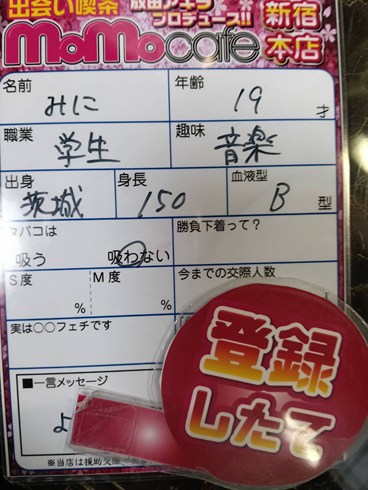 出会い喫茶
成田アキラ
プロデュース!!
新宿
本店
MoMocafe
名前
みに
年齢
19才
職業
学生
趣味
音楽
出身
茨城
身長
150
血液型
B型
タバコは
吸う 吸わない
勝負下着って?
S度
%
M度
%
今までの交際人数
実は○○フェチです
■一言メッセージ
よ
登録
したて
※当店は援助交際